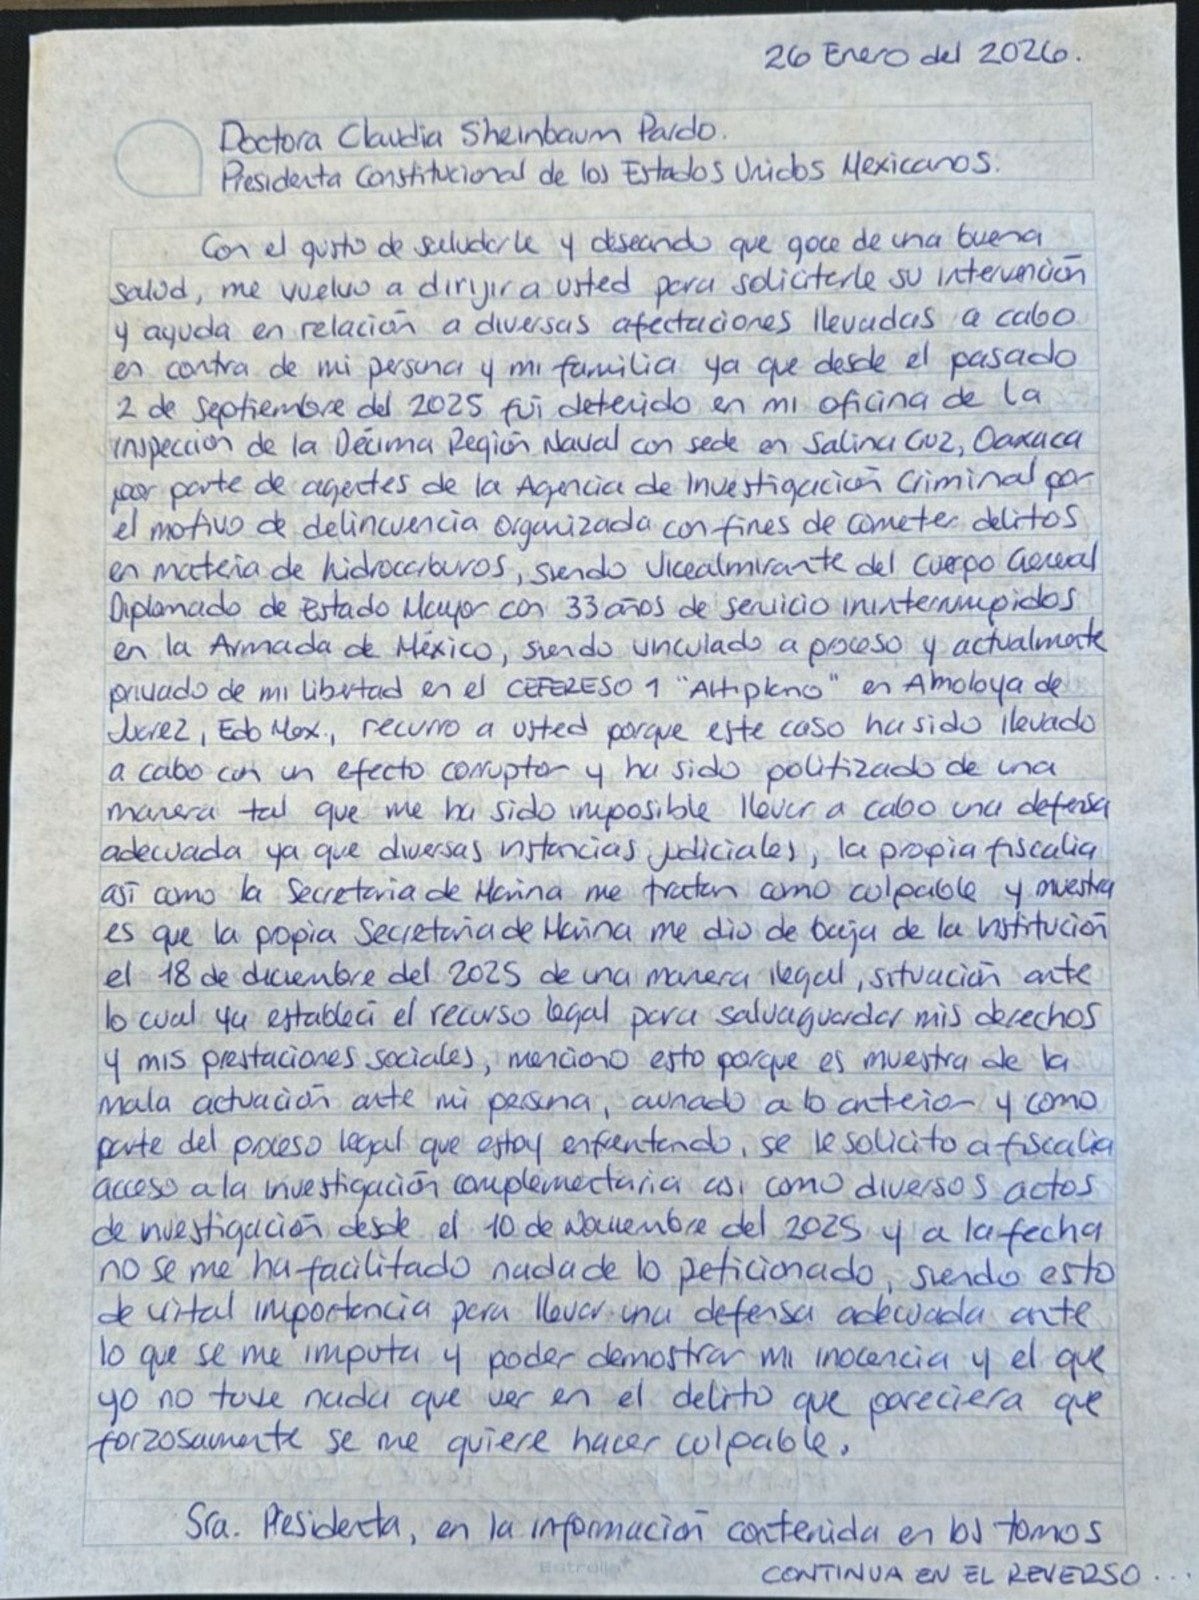 26 Enero del 2026.
Doctora Claudia Sheinbaum Pardo.
Presidenta Constitucional de los Estados Unidos Mexicanos.
Con el gusto de saludarle y deseando que goce de una buena
salud, me vuelvo a dirijir a usted para solicitarle su intervención
y ayuda en relación a diversas afectaciones llevadas a cabo
en contra de mi persona y mi familia ya que desde el pasado
2 de septiembre del 2025 fui detenido en mi oficina de la
inspección de la Décima Región Naval con sede en Salina Cruz, Oaxaca
por parte de agentes de la Agencia de Investigación Criminal por
el motivo de delincuencia organizada con fines de cometer delitos
en materia de hidrocarburos, siendo Vicealmirante del Cuerpo General
Diplomado de Estado Mayor con 33 años de servicio ininterrumpidos
en la Armada de México, siendo vinculado a proceso y actualmente
privado de mi libertad en el CEFERESO 1 "Altiplano" en Almoloya de
Juárez, Edo Mex., recurro a usted porque este caso ha sido llevado
a cabo con un efecto corruptor y ha sido politizado de una
manera tal que me ha sido imposible llevar a cabo una defensa
adecuada ya que diversas instancias judiciales, la propia fiscalia
así como la Secretaria de Marina me tratan como culpable y muestra
es que la propia Secretaria de Marina me dio de baja de la Institución
el 18 de diciembre del 2025 de una manera ilegal, situación ante
lo cual ya establecí el recurso legal para salvaguardar mis derechos
y mis prestaciones sociales, menciono esto porque es muestra de la
mala actuación ante mi persona, aunado a lo anterior y como
parte del proceso legal que estoy enfrentando, se le solicito a fiscalia
acceso a la investigación complementaria así como diversos actos
de investigación desde el 10 de Noviembre del 2025 y a la fecha
no se me ha facilitado nada de lo peticionado, siendo esto
de vital importancia para llevar una defensa adecuada ante
lo que se me imputa y poder demostrar mi inocencia y el que
yo no tuve nada que ver en el delito que pareciera que
forzosamente se me quiere hacer culpable.
Sra. Presidenta, en la información contenida en los tomos
Estrella
CONTINUA EN EL REVERSO...